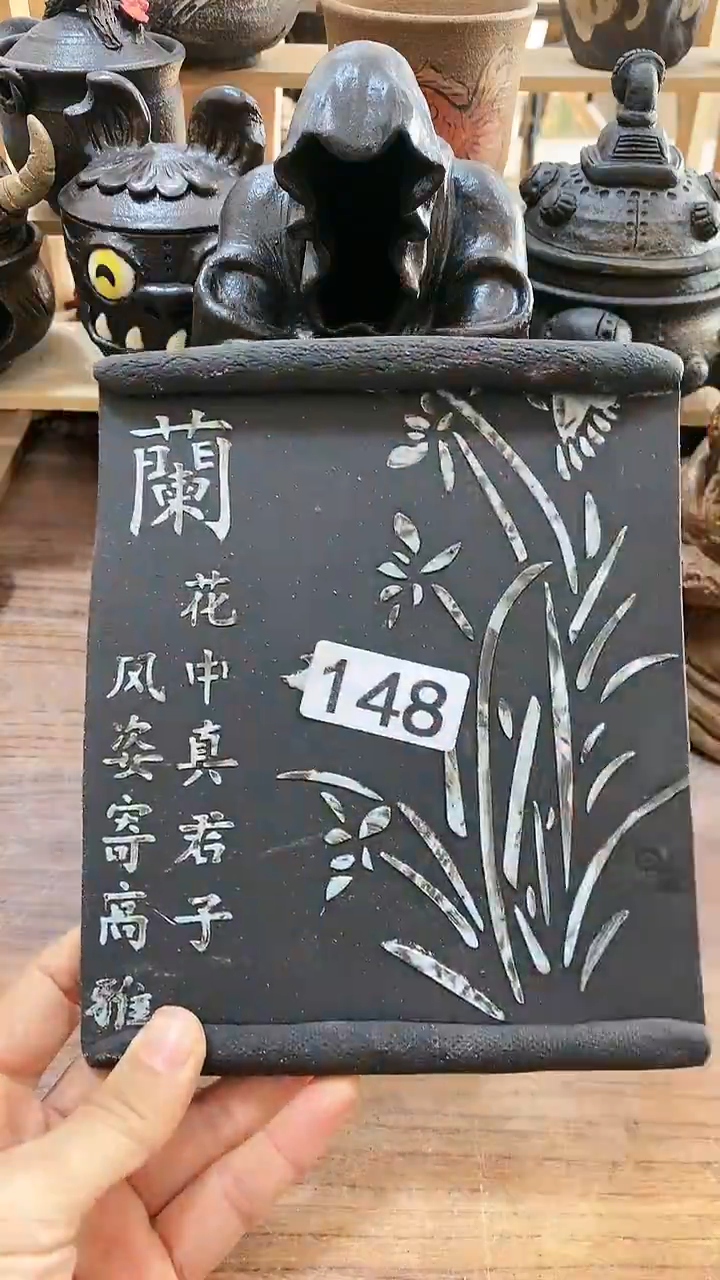 蘭
花中真君子
风姿寄高雅
148